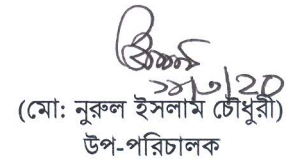 (মো: নুরুল ইসলাম চৌধুরী)
উপ-পরিচালক